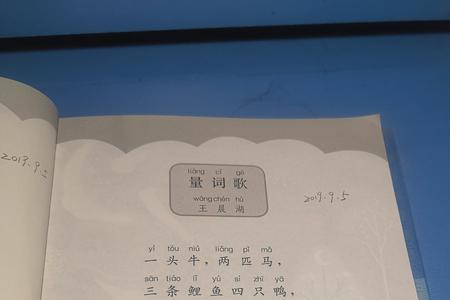 2019.9.2
liàng cí gē
量词歌
wáng chén hú
王晨湖
2019.9.5
yì tóu niú liǎng pǐ mǎ
一头牛，两匹马，
sān tiáo lǐ yú sì zhī yā
三条鲤鱼四只鸭，